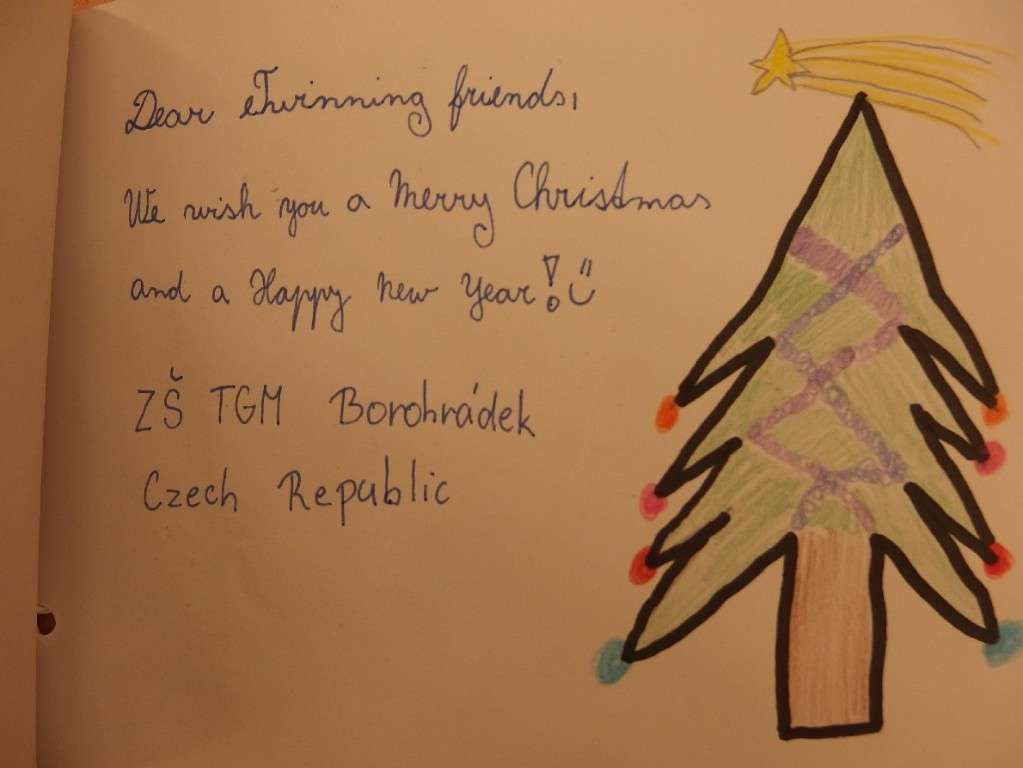 Dear eTwinning friends,
We wish you a Merry Christmas
and a Happy New Year! :)
ZŠ TGM Borohrádek
Czech Republic